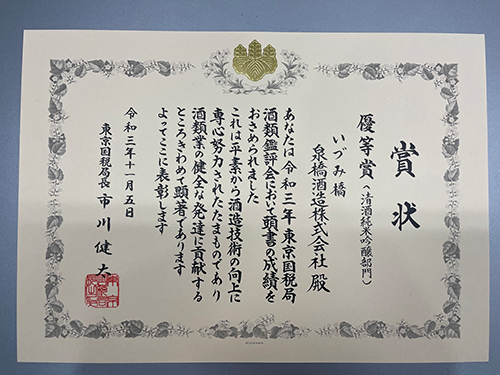 賞状
優等賞(清酒純米吟醸部門)
いづみ橋
泉橋酒造株式会社 殿
あなたは令和三年東京国税局
酒類鑑評会において頭書の成績を
おさめられました
これは平素から酒造技術の向上に
専心努力されたたまものであり
酒類業の健全な発達に貢献する
ところきわめて顕著であります
よってここに表彰します
令和三年十一月五日
東京国税局長 市川健太